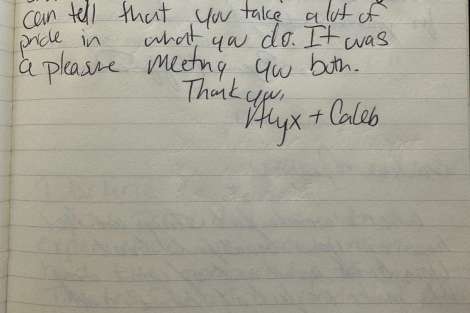 can tell that you take a lot of
pride in what you do. It was
a pleasure meeting you both.
Thank you,
Alyx + Caleb